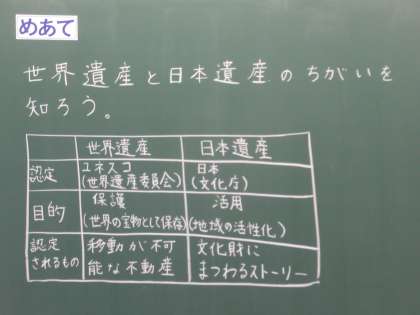 めあて
世界遺産と日本遺産のちがいを
知ろう。
世界遺産 日本遺産
認定 ユネスコ 日本
(世界遺産委員会) (文化庁)
目的 保護 活用
(世界の宝物として保存) (地域の活性化)
認定 移動が不可 文化財に
されるもの 能な不動産 まつわるストーリー